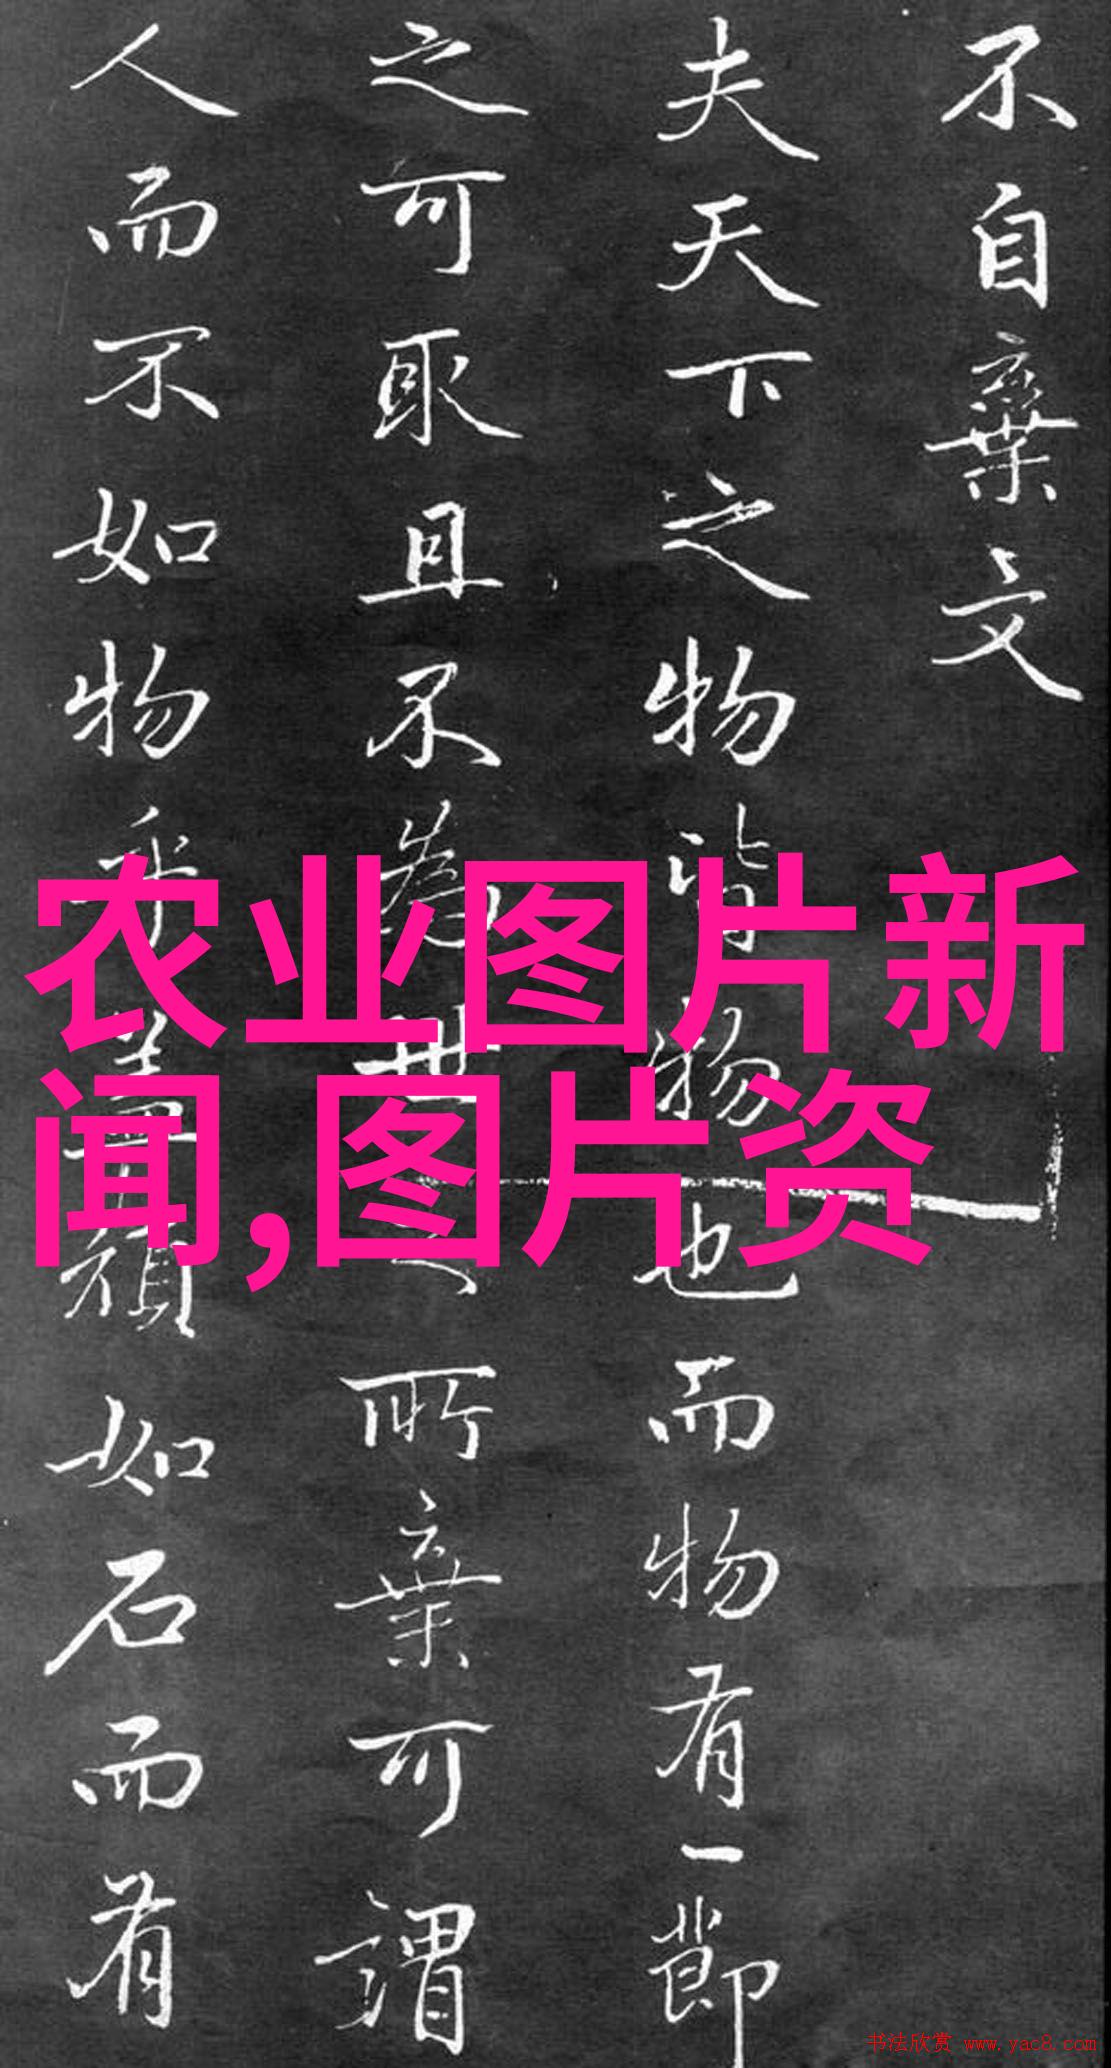 不自棄文
夫天下之物皆物也而物有一節
之可取且不為世之所棄可謂
人而不如物乎蓋頑如石而有
农业图片新
闻,图片资
书法欣赏 www.yac8.com